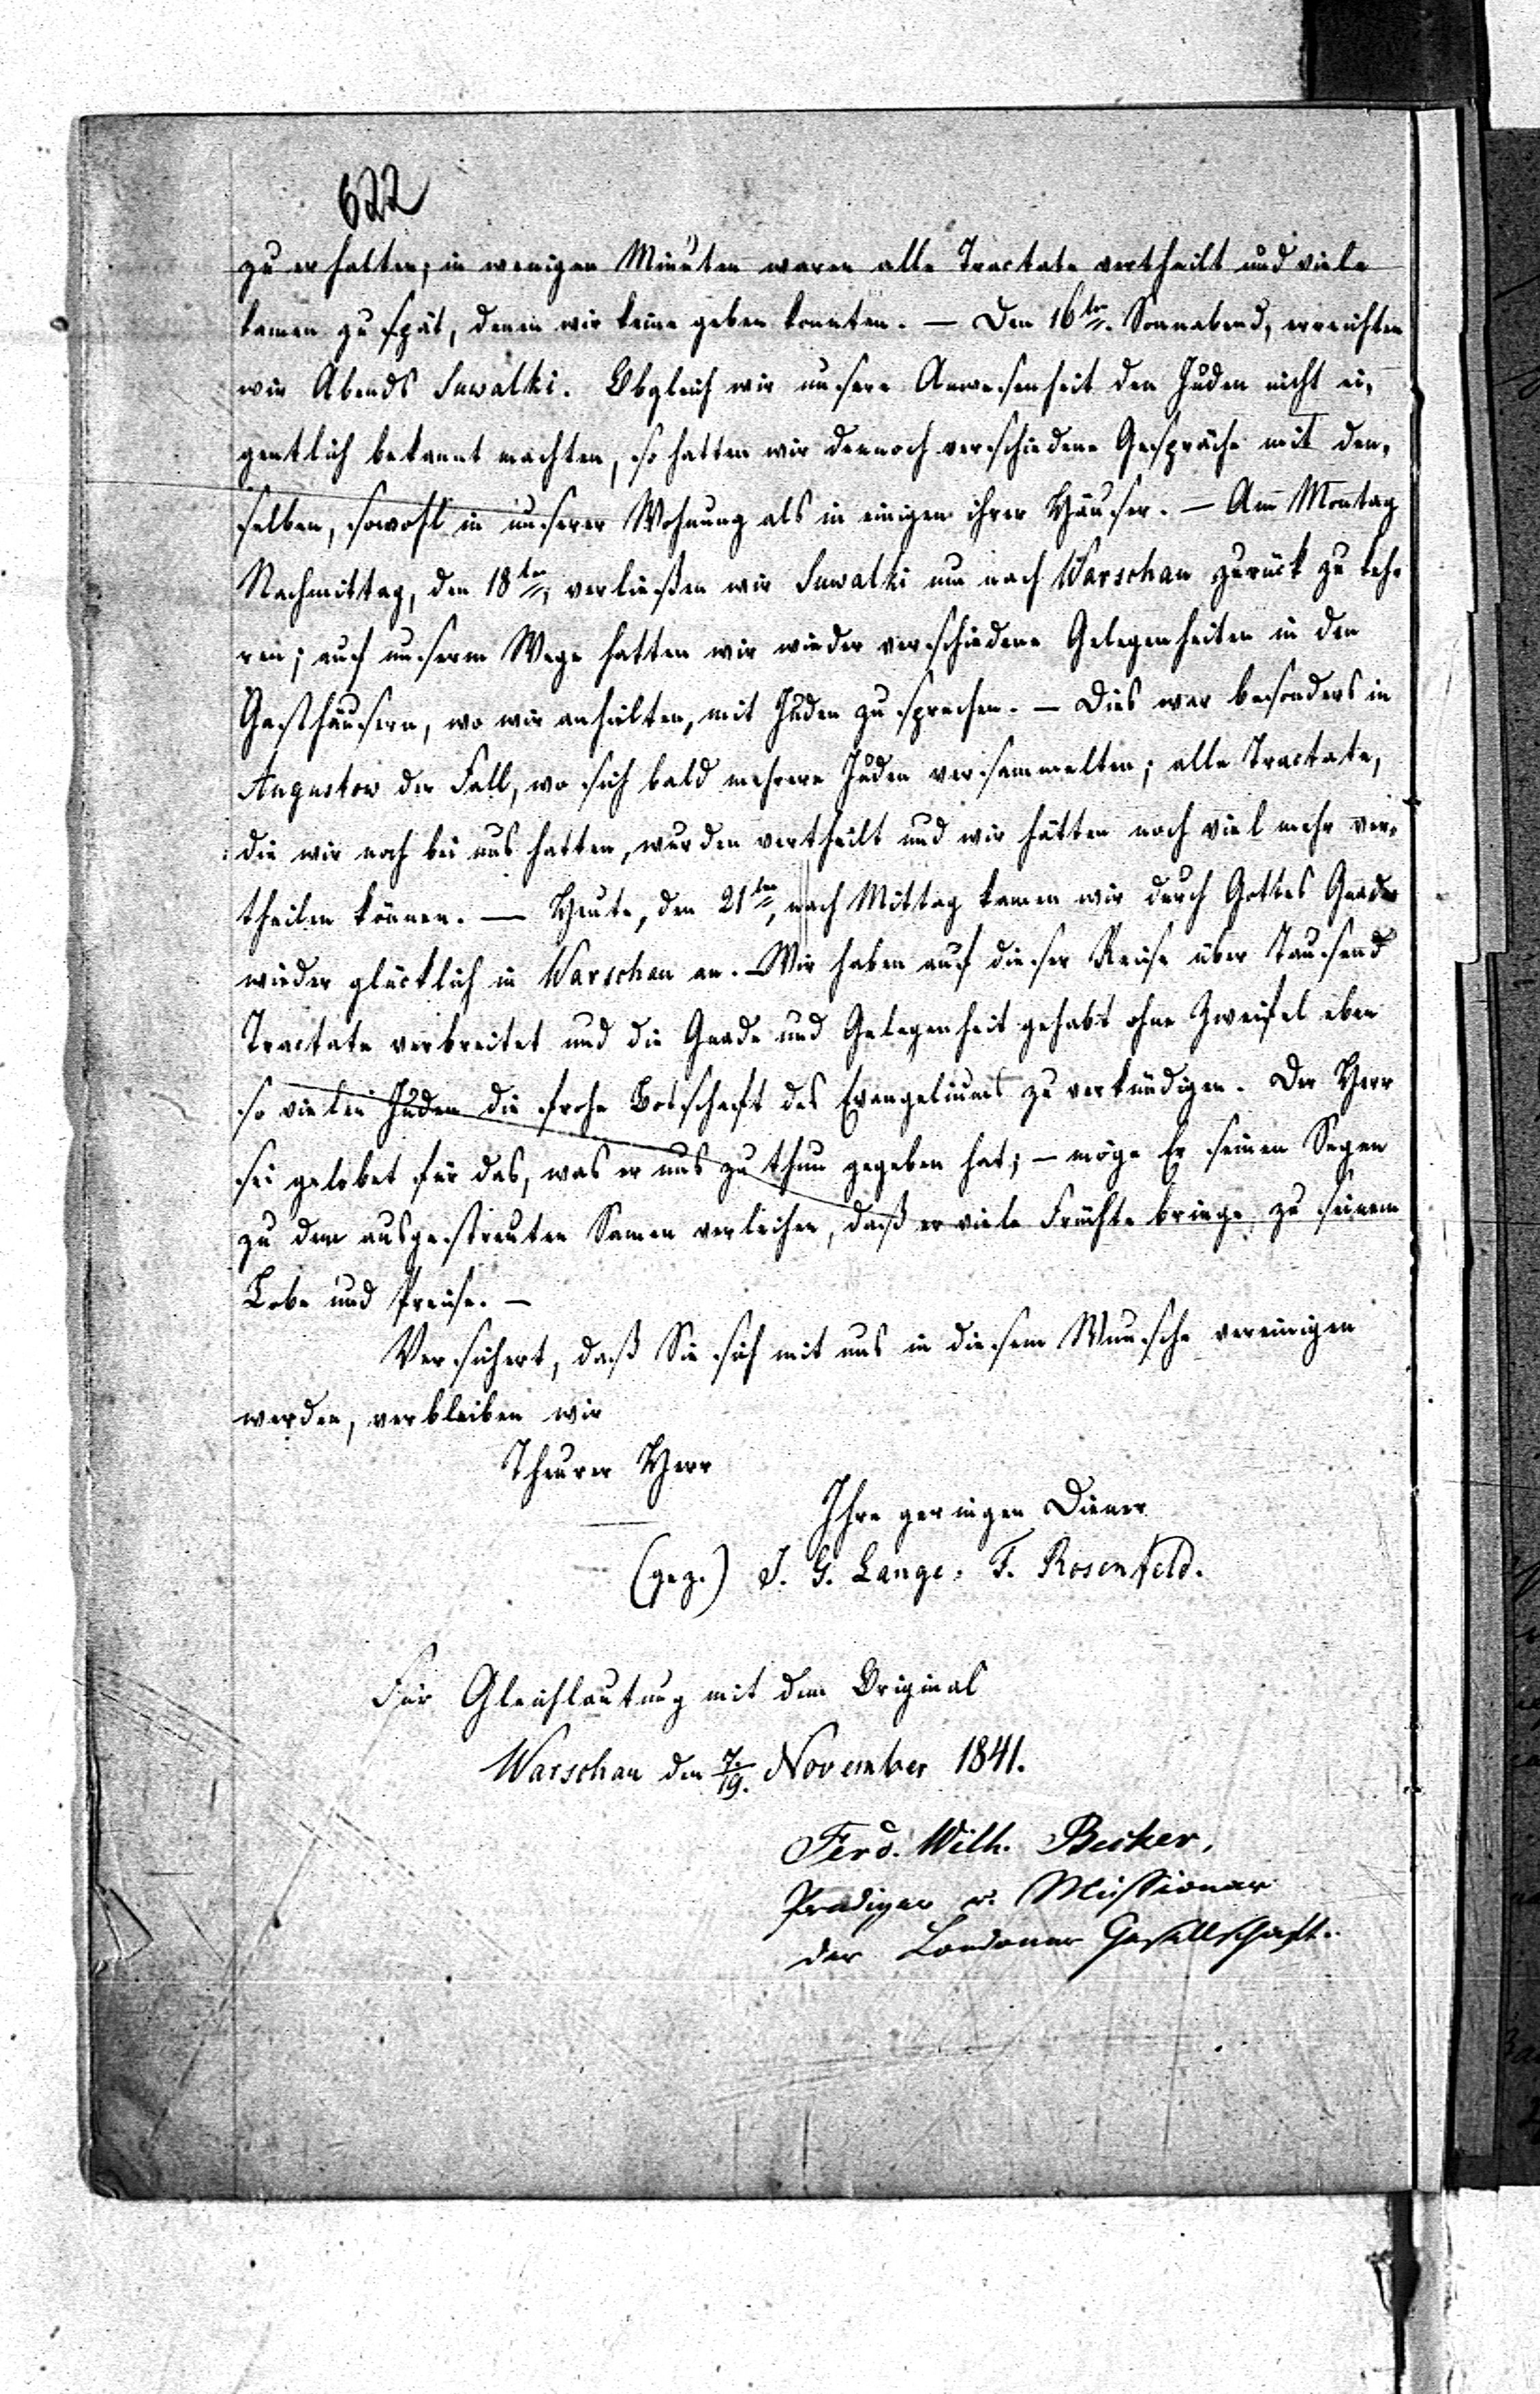 622
zu erhalten; in wenigen Minuten waren alle Tractate vertheilt und viele
kamen zu spät, denen wir keine geben konnten. — Den 16ten. Sonnabend, erreichten
wir Abends Suwalki. Obgleich wir unsere Anwesenheit den Juden nicht ei-
gentlich bekannt machten, so hatten wir dennoch verschiedene Gespräche mit den-
selben, sowohl in unserer Wohnung als in einigen ihrer Häuser. — Am Montag
Nachmittag, den 18ten, verließen wir Suwalki um nach Warschau zurück zu keh-
ren; auf unserm Wege hatten wir wieder verschiedene Gelegenheiten in den
Gasthäusern, wo wir anhielten, mit Juden zu sprechen. — Dies war besonders in
Augustow der Fall, wo sich bald mehrere Juden versammelten; alle Tractate,
die wir noch bei uns hatten, wurden vertheilt und wir hätten noch viel mehr ver-
theilen können. — Heute, den 21ten, nach Mittag kamen wir durch Gottes Gnade
wieder glücklich in Warschau an. — Wir haben auf dieser Reise über Tausend
Tractate verbreitet und die Gnade und Gelegenheit gehabt ohne Zweifel eben
so vielen Juden die frohe Botschaft des Evangeliums zu verkündigen. Der Herr
sei gelobet für das, was er uns zu thun gegeben hat; — möge Er seinen Segen
zu dem ausgestreuten Samen verleihen, daß er viele Früchte bringe zu seinem
Lobe und Preise. —
Versichert, daß Sie sich mit uns in diesem Wunsche vereinigen
werden, verbleiben wir
Theurer Herr
Ihre geringen Diener
(gez.) J. G. Lange. F. Rosenfeld.
Für Gleichlautung mit dem Original
Warschau den 7./19. November 1841.
Ferd. Wilh. Becker,
Prediger u. Missionar
der Londoner Gesellschaft.